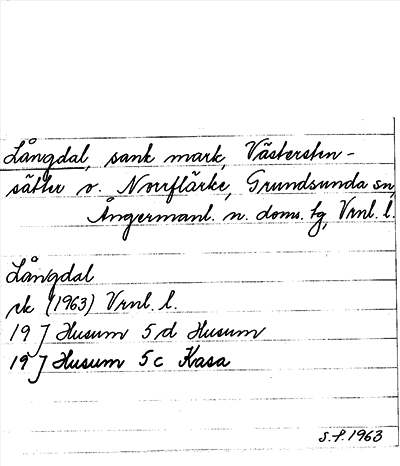 Långdal, sank mark, Västersten-
sätter o. Norrflärke, Grundsunda sn,
Ångermanl. n. doms. tg, Vrnl. l.
Långdal
ek (1963) Vrnl. l.
19 J Husum 5 d Husum
19 J Husum 5 c Kasa
S.F. 1963